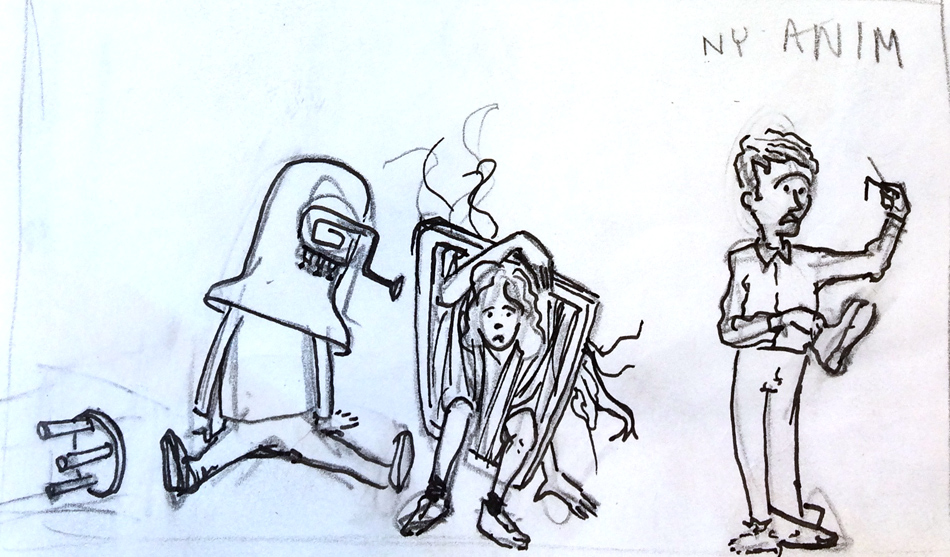 NY ANIM